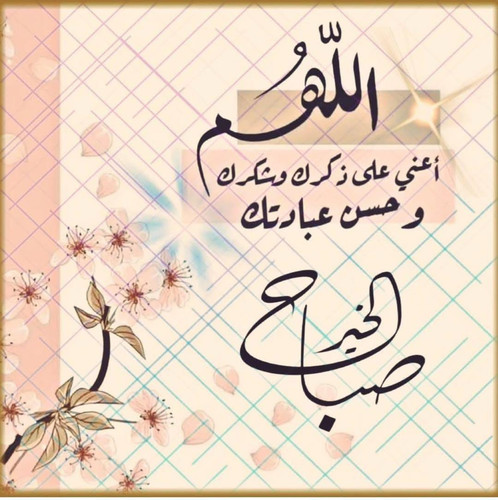 اللّهُم
أعني على ذكرك وشكرك
وحسن عبادتك
صباح الخير